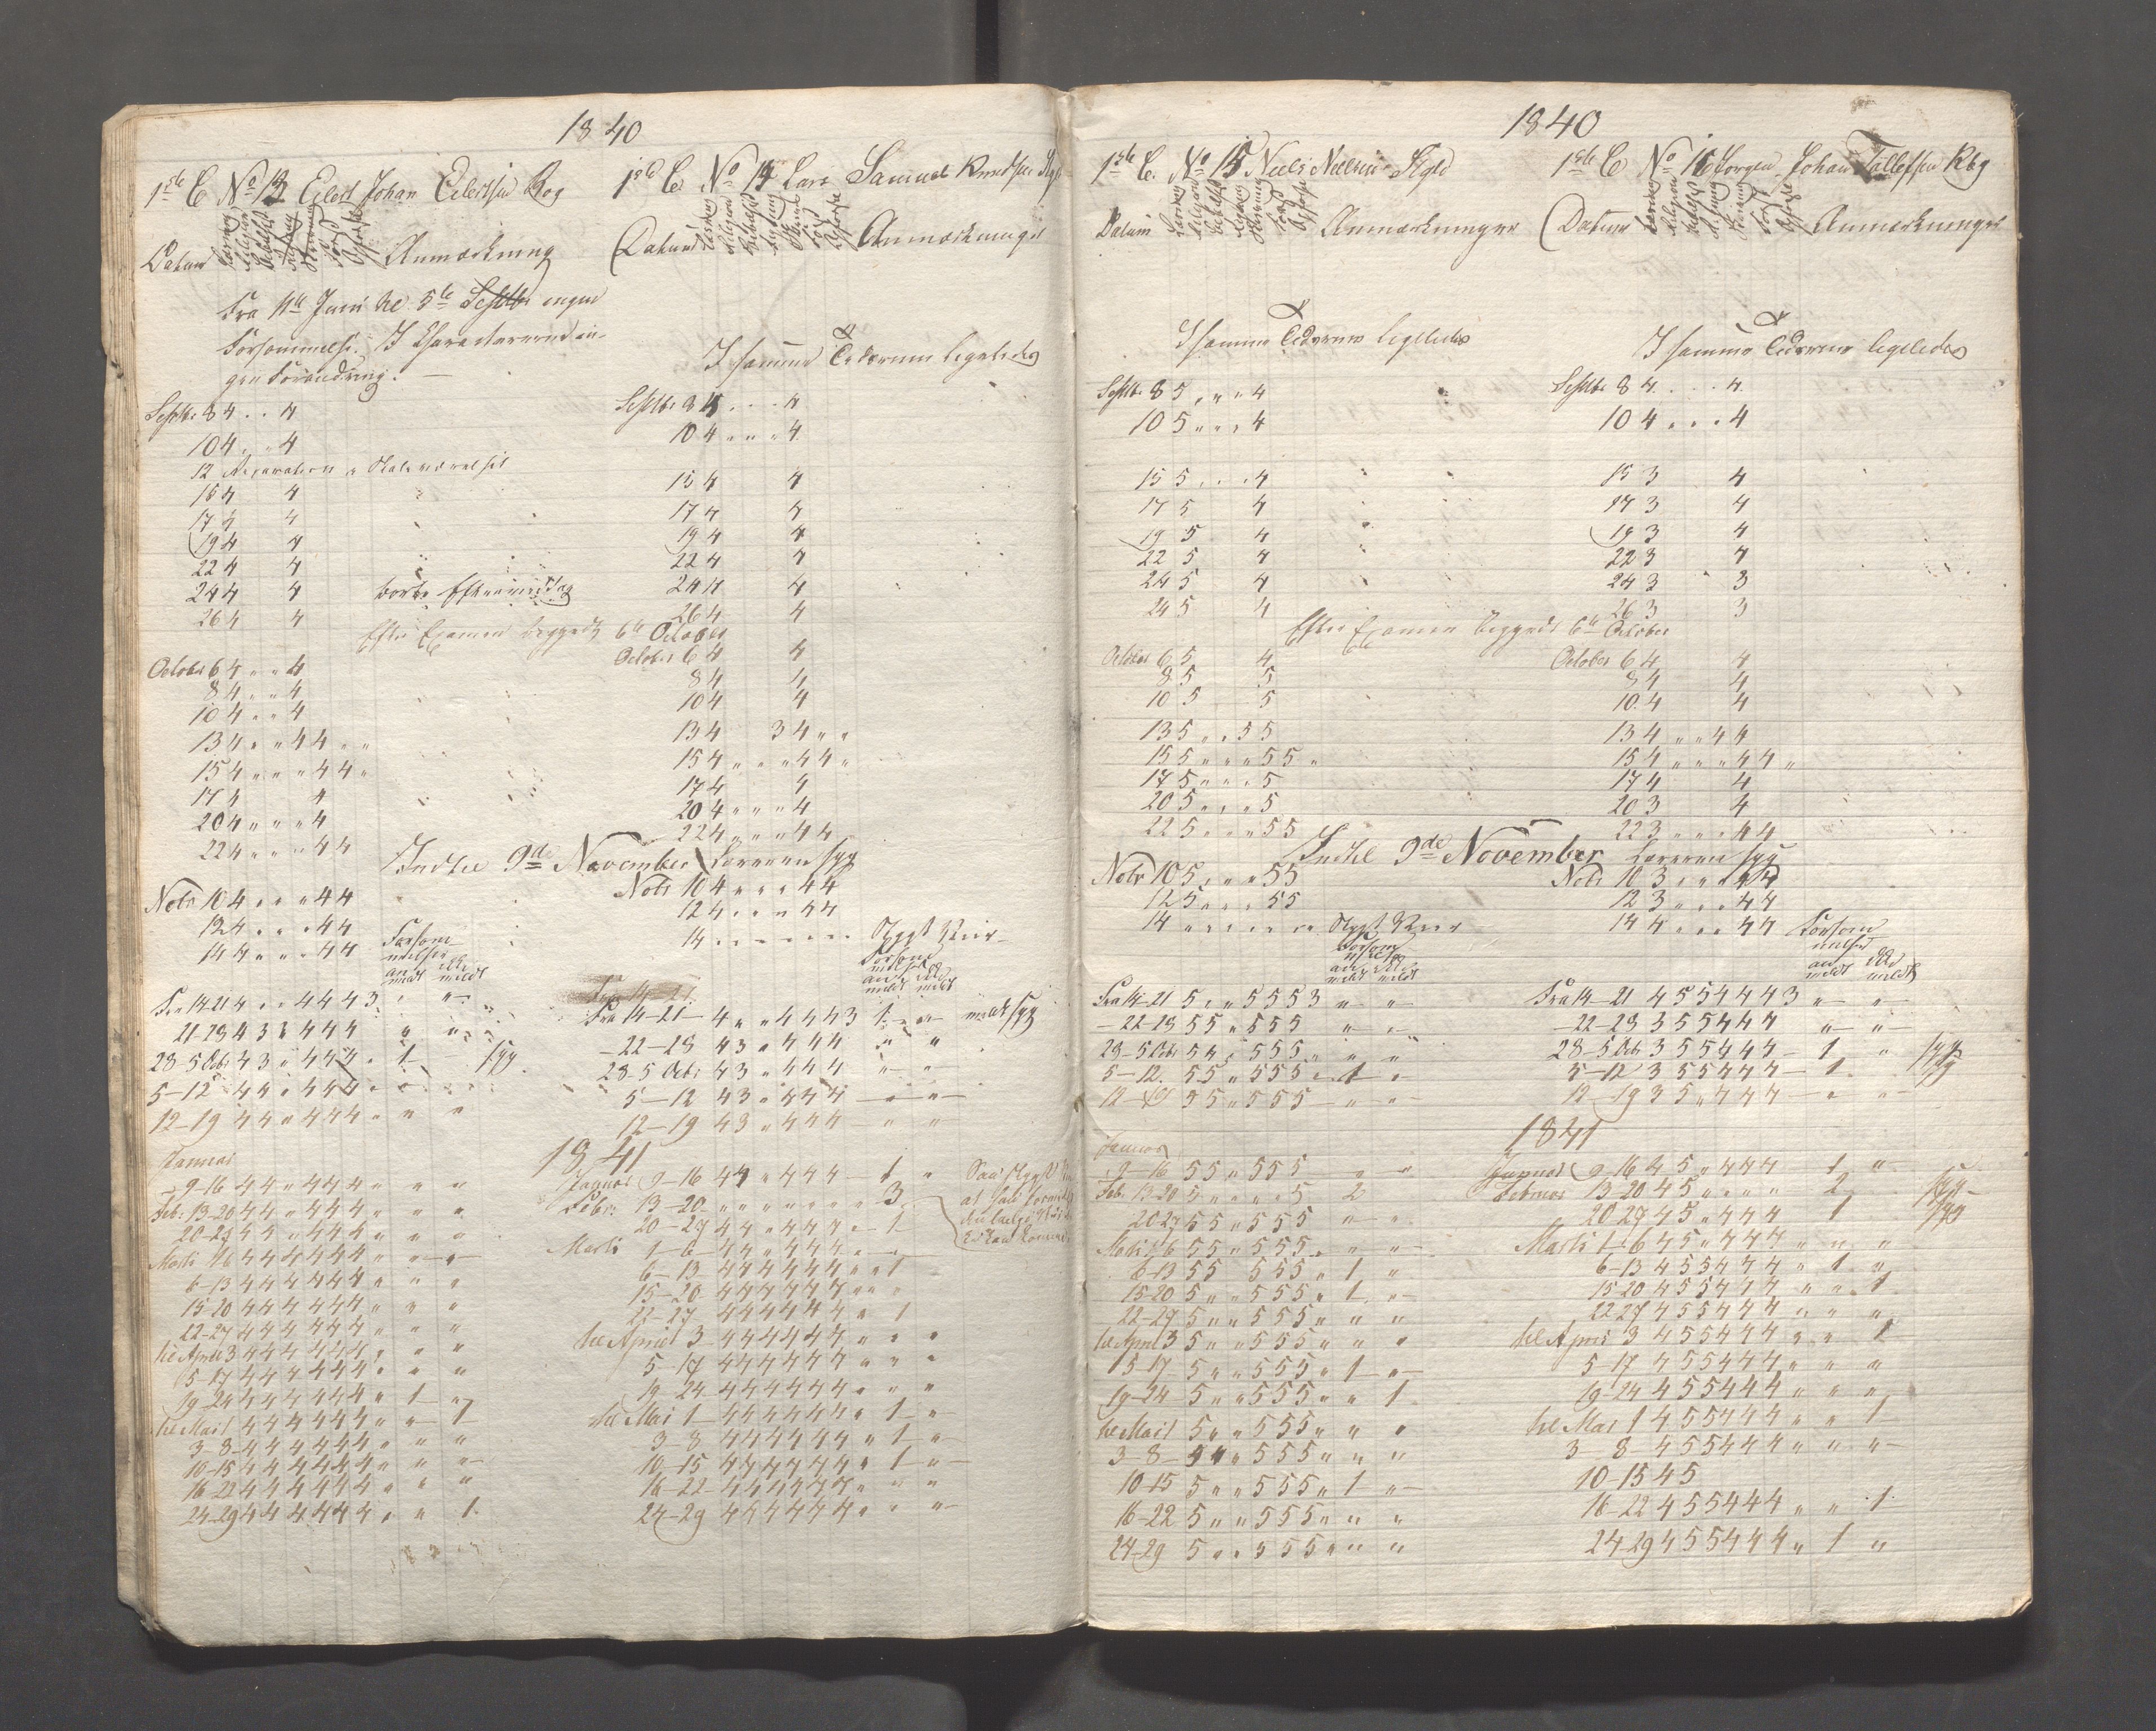 1840
1ste C No 13 Eilert Johan Eilertsen Bog
Datum Læsning Religion Anmærkning
Fra 11te Juni til 5te Septbr ingen
Forsømmelse. I Characteererne in-
gen Forandring.
Septbr 8 4 . . 4
10 4 . . 4
12 Reparation
15 4 4
17 4 4
19 4 4
22 4 4
24 4 4 borte Eftermiddag
26 4 4
Efter Examen begyndt 6te October
October 6 4 " " 4
8 4 " " 4
10 4 " " 4
13 4 " " 4 4 " "
15 4 " " " 4 4 "
17 4 4
20 4 " " " 4
22 4 " " " 4 4
Indtil 9de November Læreren syg
Nobr 10 4 " " " 4 4
12 4 " " " 4 4
14 4 " " " 4 4 Forsøm-
melser
an ikke
meldt meldt
Fra 14-21 4 " " 4 4 4 3 " "
21-28 4 3 " 4 4 4 " "
28-5 Decbr 4 3 " 4 4 4 " 1 - syg
5-12 4 4 " 4 4 4 " " "
12-19 4 4 " 4 4 4 " " "
Januar
9-16 4 4 " 4 4 4 " " "
Feb: 13-20 4 4 " 4 4 4 " " "
20-27 4 4 " 4 4 4 " " "
Marts 1-6 4 4 4 4 4 4 " " "
6-13 4 4 4 4 4 4 " " "
15-20 4 4 4 4 4 4 " " "
22-27 4 4 4 4 4 4 " " "
til April 3 4 4 4 4 4 4 " " "
5-17 4 4 4 4 4 4 " " "
19-24 4 4 4 4 4 4 " 1 "
til Mai 1 4 4 4 4 4 4 " " 1
3-8 4 4 4 4 4 4 " " "
10-15 4 4 4 4 4 4 " " "
16-22 4 4 4 4 4 4 " " "
24-29 4 4 4 4 4 4 " " 1
1ste C No 14 Lars Samuel Knudsen
Datum Læsning Religion Anmærkninger
I samme Tidsrum ligeledes
Septbr 8 4 . . . 4
10 4 " " " 4
15 4 4
17 4 4
19 4 4
22 4 4
24 4 4
26 4 4
October 6 4 4
8 4 4
10 4 4
13 4 3 4 " "
15 4 " " " 4 4 "
17 4 4
20 4 " " " 4
22 4 " " " 4 4
Nobr 10 4 " " " 4 4
12 4 " " " 4 4
14 " " " " " " Stygt Veir
Forsøm-
melser
an ikke
meldt meldt
Fra 14-21
Fra 14-21 4 " " 4 4 4 3 1 " meldt syg
22-28 4 3 " 4 4 4 " "
28-5 Decbr 4 3 " 4 4 4 " "
5-12 4 3 " 4 4 4 " "
12-19 4 3 " 4 4 4 " "
1841
Januar 9-16 4 4 " 4 4 4 1 "
Febr: 13-20 " " " " " " " 3
20-27 4 4 " 4 4 4 " 1
Marts 1-6 4 4 " 4 4 4 " "
6-13 4 4 4 4 4 4 " " 1
15-20 4 4 4 4 4 4 " " "
22-27 4 4 4 4 4 4 " 1
til April 3 4 4 4 4 4 4 " " "
5-17 4 4 4 4 4 4 " " "
19-24 4 4 4 4 4 4 " " "
til Mai 1 4 4 4 4 4 4 " 1 "
3-8 4 4 4 4 4 4 " 1 "
10-15 4 4 4 4 4 4 " 1 "
16-22 4 4 4 4 4 4 " " "
24-29 4 4 4 4 4 4 " " "
1840
1ste C. No 15 Niels Nielsen
Datum Læsning Religion Anmærkninger
I samme Tidsrum ligeledes
Septbr 8 5 " " " 4
10 5 " " " 4
15 5 . . . 4
17 5 4
19 5 4
22 5 4
24 5 4
24 5 4
Efter Examen begyndt 6te October
October 6 5 4
8 5 5
10 5 5
13 5 " " 5 5
15 5 " " " 5 5 "
17 5 " " " 5
20 5 " " " 5
22 5 " " " 5 5
Indtil 9de November Læreren syg
Nobr 10 5 " " " 5 5
12 5 " " " 5 5
14 " " " " " " Stygt Veir
Forsøm-
melser
an ikke
meldt meldt
Fra 14-21 5 " " 5 5 5 3 " "
22-28 5 5 " 5 5 5 " "
28-5 Decbr 5 4 " 5 5 5 " " "
5-12 5 5 " 5 5 5 " 1 "
12-19 5 5 " 5 5 5 " "
Januar
9-16 5 5 " 5 5 5 " "
Feb. 13-20 5 " " " " 5 2
20-27 5 5 " 5 5 5 " "
Marts 1-6 5 5 " 5 5 5 " " "
6-13 5 5 5 5 5 " 1 "
15-20 5 " " 5 5 5 " 1 "
22-27 5 " " 5 5 5 " " "
til April 3 5 " " 5 5 5 " " "
5-17 5 " " 5 5 5 " 1 "
19-24 5 " " 5 5 5 " " 1
til Mai 1 5 " " 5 5 5 " " "
3-8 5 " " 5 5 5 " " "
10-15 5 " " 5 5 5 " 1 "
16-22 5 " " 5 5 5 " " "
24-29 5 " " 5 5 5 " " "
1ste C No 16 Jørgen Johan Tollefsen
Datum Læsning Religion Anmærkninger
I samme Tidsrum ligeledes
Septbr 8 4 . . . 4
10 4 " " " 4
15 3 4
17 3 4
19 3 4
22 3 4
24 3 3
26 3 3
October 6 4 4
8 4 4
10 4 4
13 4 " " 4 4
15 4 " " " 4 4 "
17 4 4
20 3 4
22 3 " " " 4 4
Nobr 10 3 " " " 4 4
12 3 " " " 4 4
14 4 " " " 4 4 Forsøm-
melser
an ikke
meldt meldt
Fra 14-21 4 5 5 4 4 4 3 " "
22-28 3 5 5 4 4 4 " "
28-5 Decbr 3 5 5 4 4 4 1 " syg
5-12 3 5 5 4 4 4 1 syg
12-19 3 5 " 4 4 4 " "
1841
Januar 9-16 4 5 " 4 4 4 1 "
Februar 13-20 4 5 " " " " 2 syg
20-27 4 5 " 4 4 4 1 syg
Marts 1-6 4 5 " 4 4 4 " " "
6-13 4 5 5 4 4 4 " 1 "
15-20 4 5 5 4 4 4 " " 1
22-27 4 5 5 4 4 4 " " "
til April 3 4 5 5 4 4 4 " " 1
5-17 4 5 5 4 4 4 " " "
19-24 4 5 5 4 4 4 " " "
til Mai 1 4 5 5 4 4 4 " " 1
3-8 4 5 5 4 4 4 " " "
10-15 4 5
16-22 4 5 5 4 4 4 " " 1
24-29 4 5 5 4 4 4 " 1 "